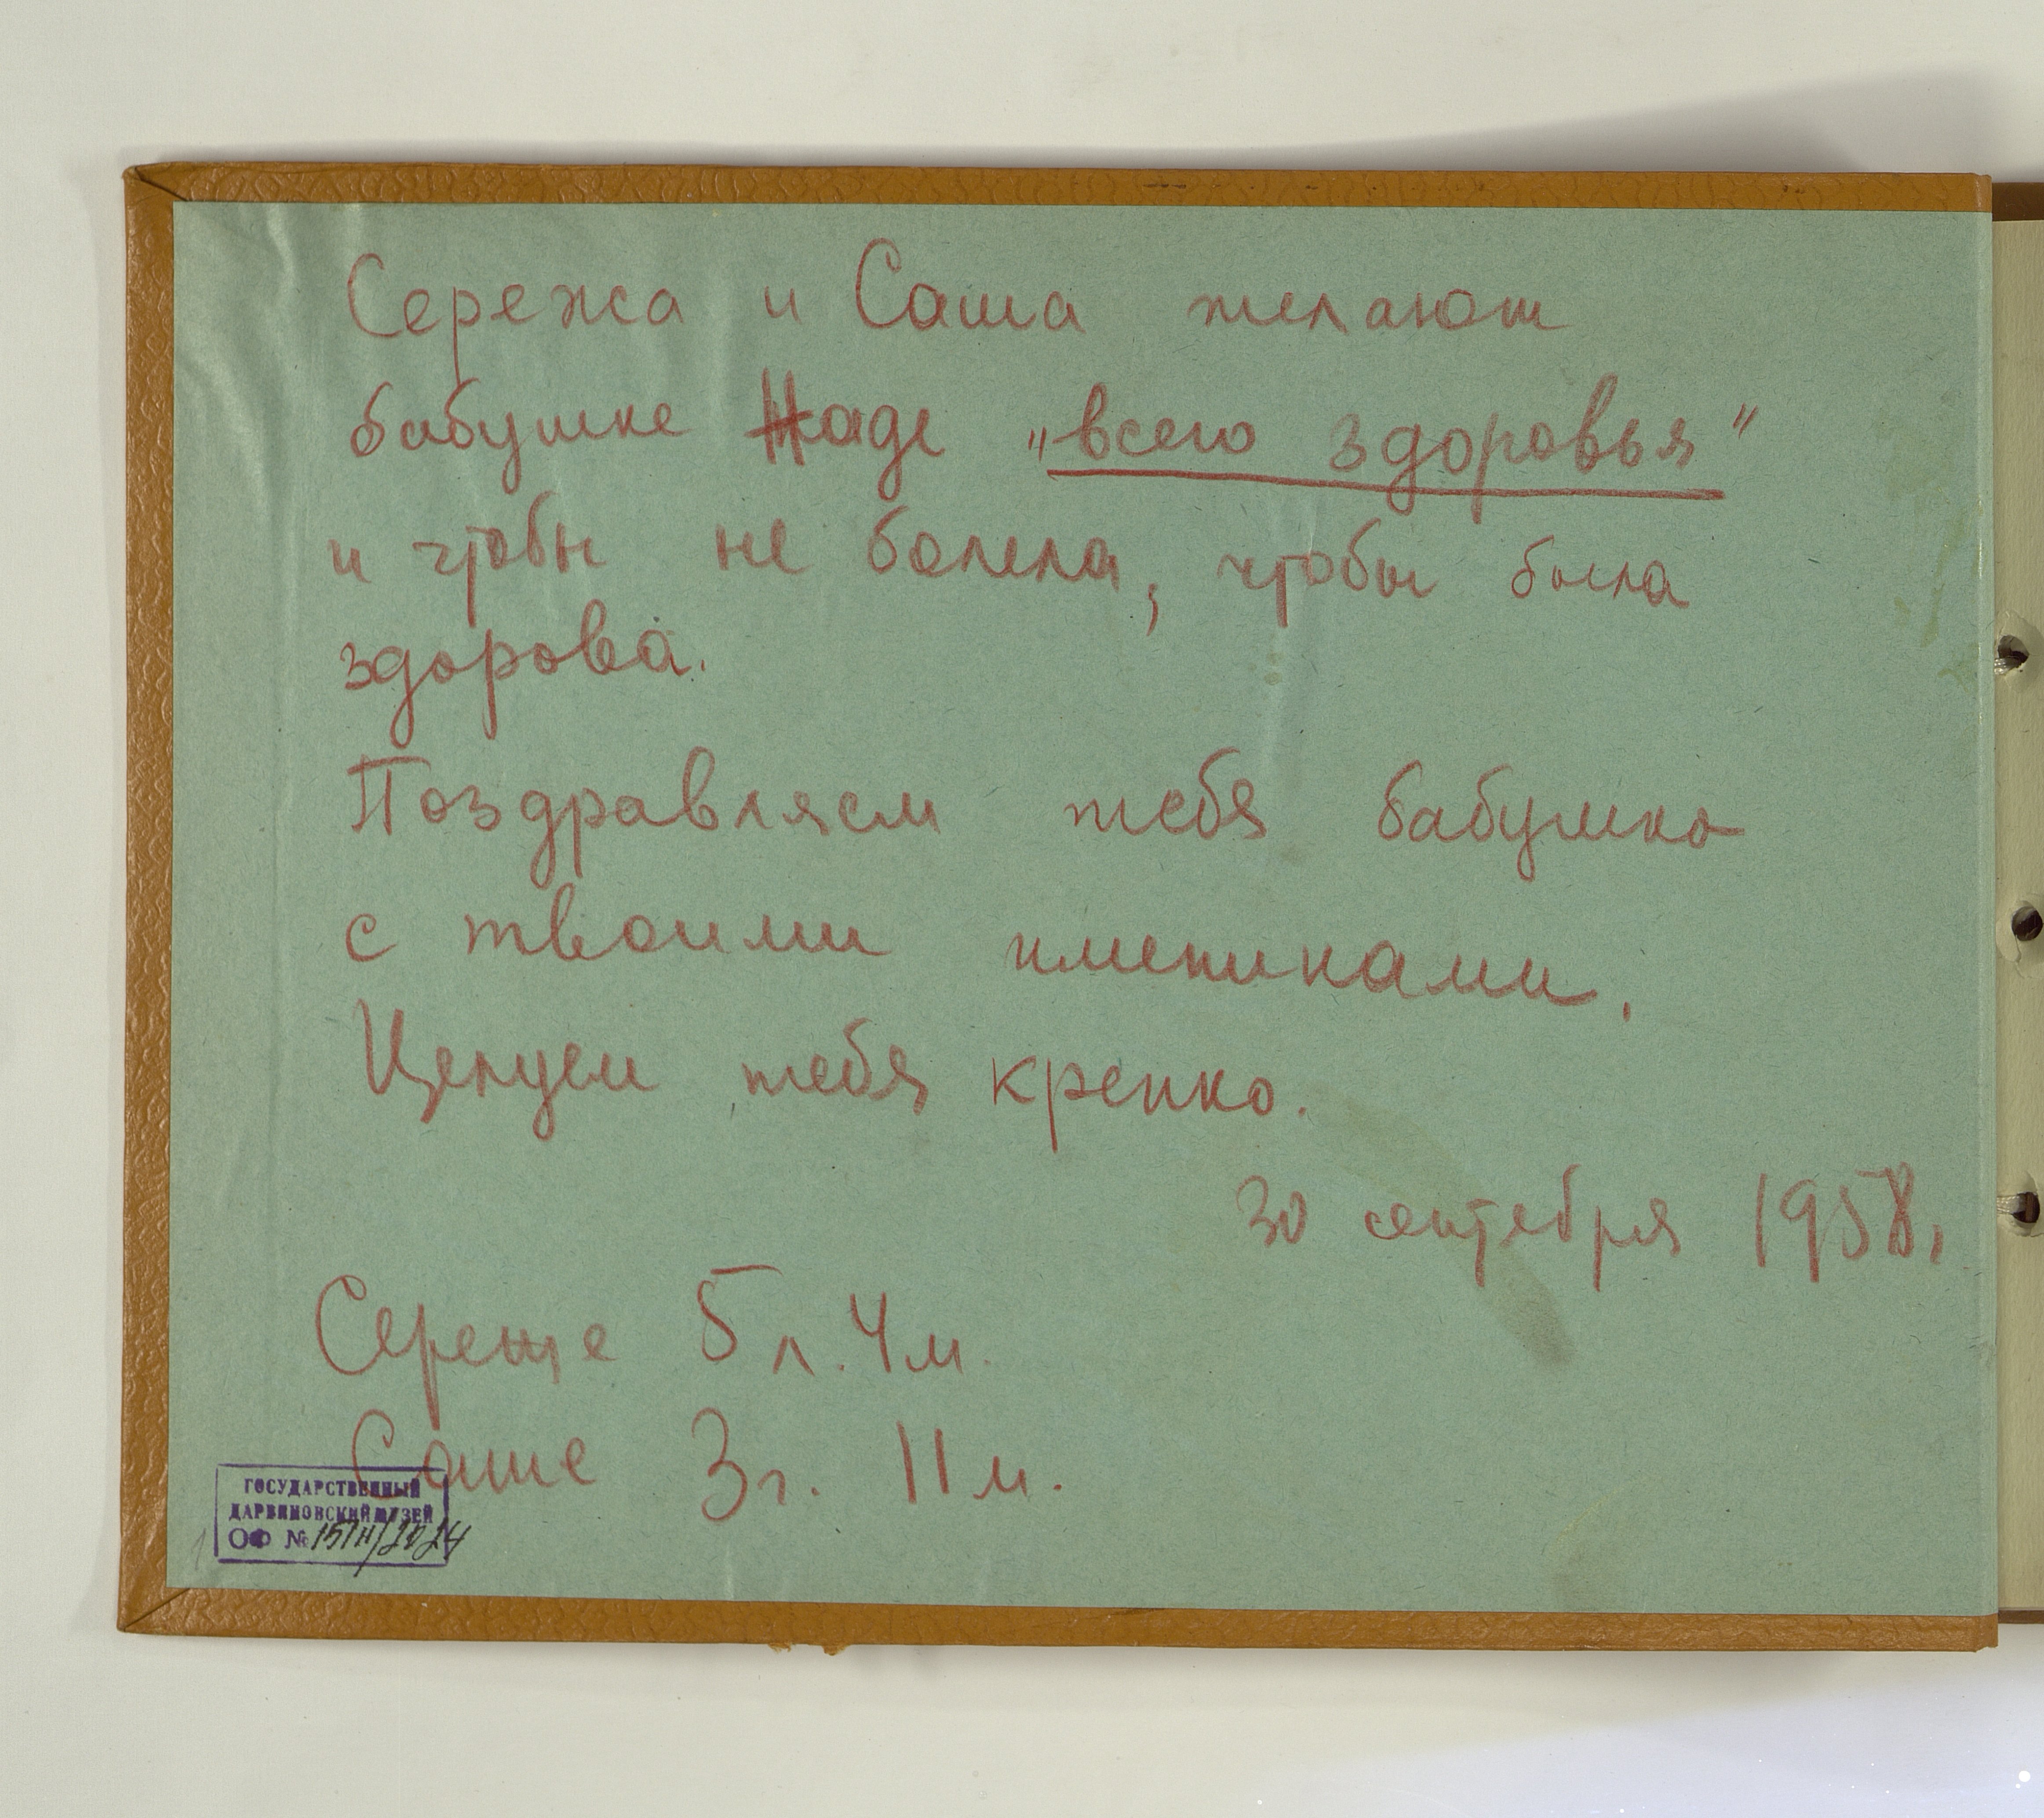 Сережа и Саша желают
бабушке Наде „всего здоровья"
и чтобы не болела, чтобы была
здорова.
Поздравляем тебя бабушка
с твоими именинами.
Целуем тебя крепко.
30 сентября 1958.
Сереже 5 л. 4 м.
Саше 3 г. 11 м.
ГОСУДАРСТВЕННЫЙ
ДАРВИНОВСКИЙ МУЗЕЙ
ОФ №